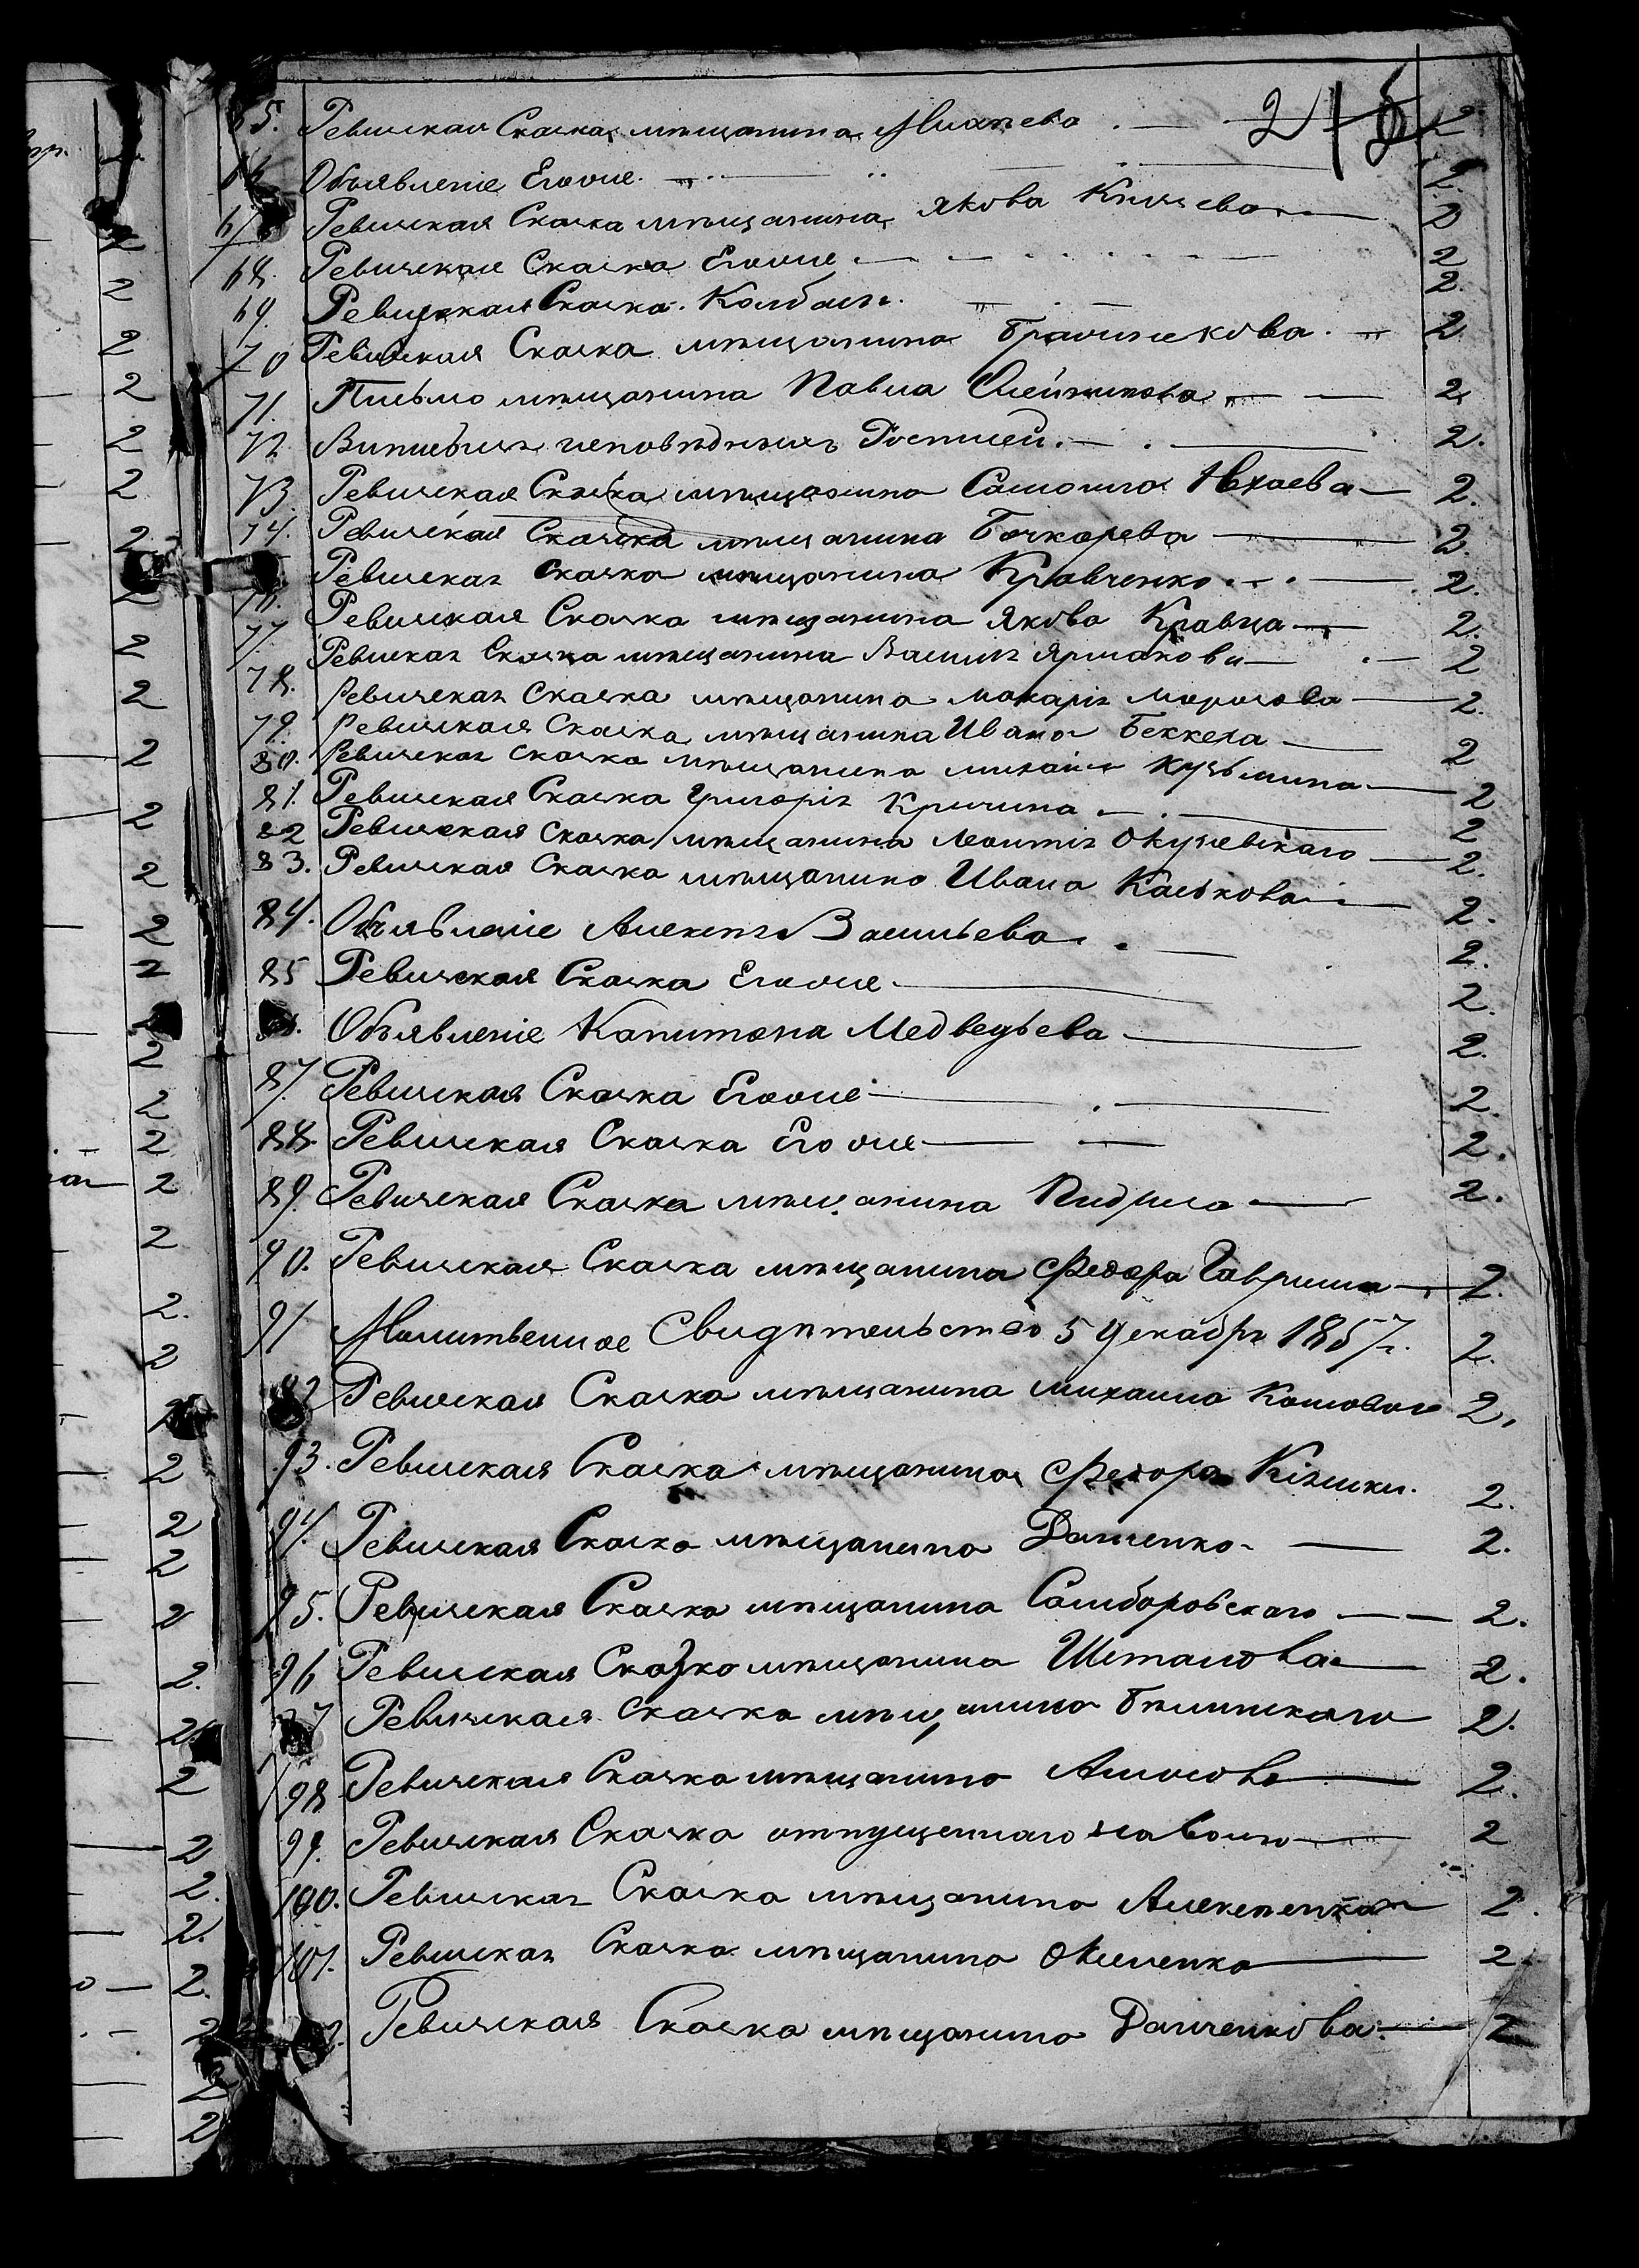 65. Ревизская Сказка мѣщанина Михѣева . — 2
66 Объявленіе Егоже. — 2.
67 Ревизская Сказка мѣщанина Якова Князева — 2
68. Ревизская Сказка Егоже — 2
69. Ревизская Сказка Колбасы. — 2.
70 Ревизская Сказка мѣщанина — 2
71. Письмо мѣщанина Павла Олейникова — 2
72 исповѣдныхъ Росписей. — 2.
73 Ревизская Сказка мѣщанина — 2.
74. Ревизская Сказка мѣщанина Бочкарева — 2.
Ревизская Сказка мѣщанина Кравченко — 2.
76. Ревизская Сказка мѣщанина Якова Кравца — 2.
77. Ревизская Сказка мѣщанина Василія Ярмакова — 2
78. Ревизская Сказка мѣщанина Макарія Морозова — 2.
79. Ревизская Сказка мѣщанина Ивана Беккера — 2
80. Ревизская Сказка мѣщанина Михаила Кузьмина — 2
81. Ревизская Сказка Григорія — 2
82 Ревизская Сказка мѣщанина Леонтія — 2.
83. Ревизская Сказка мѣщанина Ивана Каськова — 2.
84. Объявленіе Алексѣя Васильева — 2.
85 Ревизская Сказка Егоже — 2.
86. Объявленіе Капитона Медведьева — 2.
87. Ревизская Сказка Егоже — 2.
88. Ревизская Сказка Егоже — 2.
89. Ревизская Сказка мѣщанина — 2.
90. Ревизская Сказка мѣщанина Федора Гавриша — 2.
91 Молитвенное Свидѣтельство 5 Декабря 1857 г. 2.
92 Ревизская Сказка мѣщанина Михаила 2.
93. Ревизская Сказка мѣщанина Федора 2.
94. Ревизская Сказка мѣщанина Данченко — 2.
95. Ревизская Сказка мѣщанина Самборовскаго — 2.
96 Ревизская Сказка мѣщанина Шеталова — 2.
97 Ревизская Сказка мѣщанина Бѣлинскаго 2.
98 Ревизская Сказка мѣщанина Амосова — 2.
99. Ревизская Сказка отпущеннаго на волю — 2
100. Ревизская Сказка мѣщанина Алексѣенка 2.
101. Ревизская Сказка мѣщанина — 2
Ревизская Сказка мѣщанина Данченкова — 2